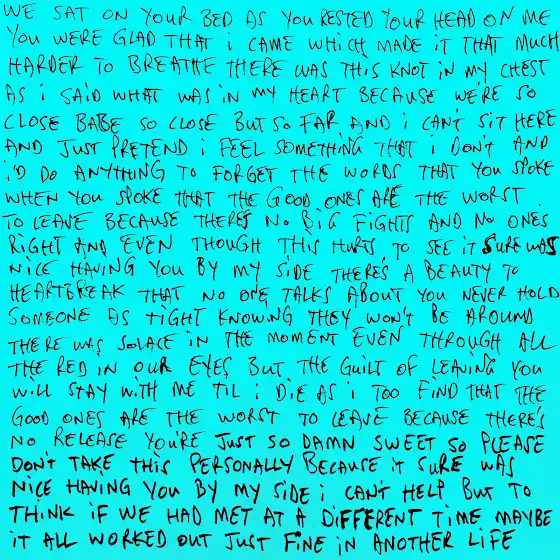 WE SAT ON YOUR BED AS YOU RESTED YOUR HEAD ON ME
YOU WERE GLAD THAT i CAME WHICH MADE IT THAT MUCH
HARDER TO BREATHE THERE WAS THIS KNOT IN MY CHEST
AS i SAID WHAT WAS IN MY HEART BECAUSE WE'RE SO
CLOSE BABE SO CLOSE BUT SO FAR AND i CAN'T SIT HERE
AND JUST PRETEND i FEEL SOMETHING THAT i DON'T AND
i'D DO ANYTHING TO FORGET THE WORDS THAT YOU SPOKE
WHEN YOU SPOKE THAT THE GOOD ONES ARE THE WORST
TO LEAVE BECAUSE THERE'S NO BIG FIGHTS AND NO ONES
RIGHT AND EVEN THOUGH THIS HURTS TO SEE IT SURE WAS
NICE HAVING YOU BY MY SIDE THERE'S A BEAUTY TO
HEARTBREAK THAT NO ONE TALKS ABOUT YOU NEVER HOLD
SOMEONE AS TIGHT KNOWING THEY WON'T BE AROUND
THERE WAS SOLACE IN THE MOMENT EVEN THROUGH ALL
THE RED IN OUR EYES BUT THE GUILT OF LEAVING YOU
WILL STAY WITH ME TIL i DIE AS i TOO FIND THAT THE
GOOD ONES ARE THE WORST TO LEAVE BECAUSE THERE'S
NO RELEASE YOU'RE JUST SO DAMN SWEET SO PLEASE
DON'T TAKE THIS PERSONALLY BECAUSE IT SURE WAS
NICE HAVING YOU BY MY SIDE i CAN'T HELP BUT TO
THINK IF WE HAD MET AT A DIFFERENT TIME MAYBE
IT ALL WORKED OUT JUST FINE IN ANOTHER LIFE